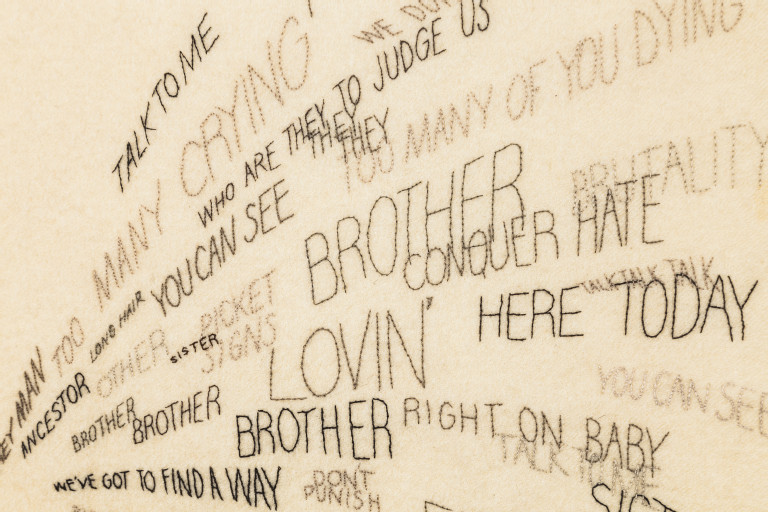 WE DON'
TALK TO ME
CRYING
WHO ARE THEY TO JUDGE US
THEY
THEY
TOO MANY OF YOU DYING
TOO MANY
YOU CAN SEE
BROTHER
BRUTALITY
CONQUER HATE
LONG HAIR
PICKET
SIGNS
TALK TALK TALK
HERE TODAY
LOVIN'
OTHER
SISTER
EY MAN
ANCESTOR
YOU CAN SEE
BROTHER
BROTHER
BROTHER
RIGHT ON BABY
TALK TO ME
WE'VE GOT TO FIND A WAY
DON'T
PUNISH